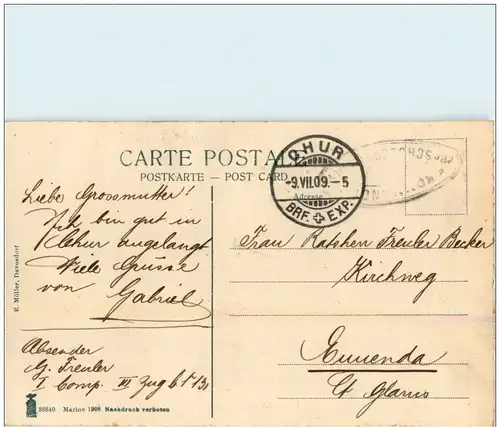 CARTE POSTALE
POSTKARTE — POST CARD
CHUR
-9.VII.09.-5
BRF. EXP.
Adresse
Liebe Grossmutter!
Ich bin gut in
Chur angelangt
Viele Grüsse
von
Gabriel
Absender
G. Freuler
I Comp. III Zug
Frau Ratsherr Freuler Becker
Kirchweg
Ennenda
Ct Glarus
E. Müller, Davosdorf
38840 Marine 1908 Nachdruck verboten